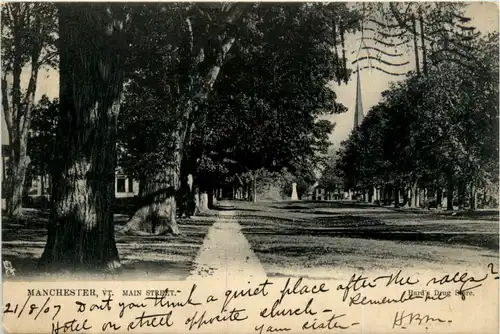 MANCHESTER, VT. MAIN STREET.
Hard's Drug Store.
21/8/07 Don't you think a quiet place after the
Remember
Hotel on street opposite church -
HBM.